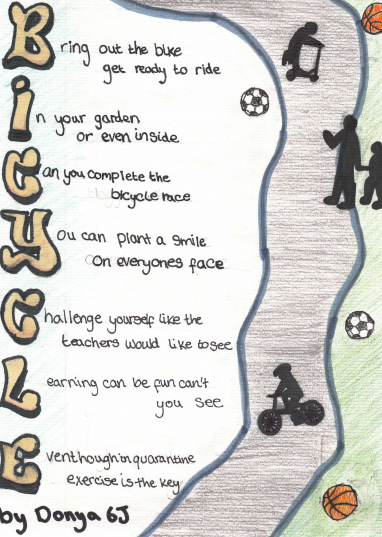 Bring out the bike
get ready to ride
In your garden
or even inside
Can you complete the
bicycle race
You can plant a smile
On everyones face
Challenge yourself like the
teachers would like to see
Learning can be fun can't
you see
Even though in quarantine
exercise is the key
by Donya 6J